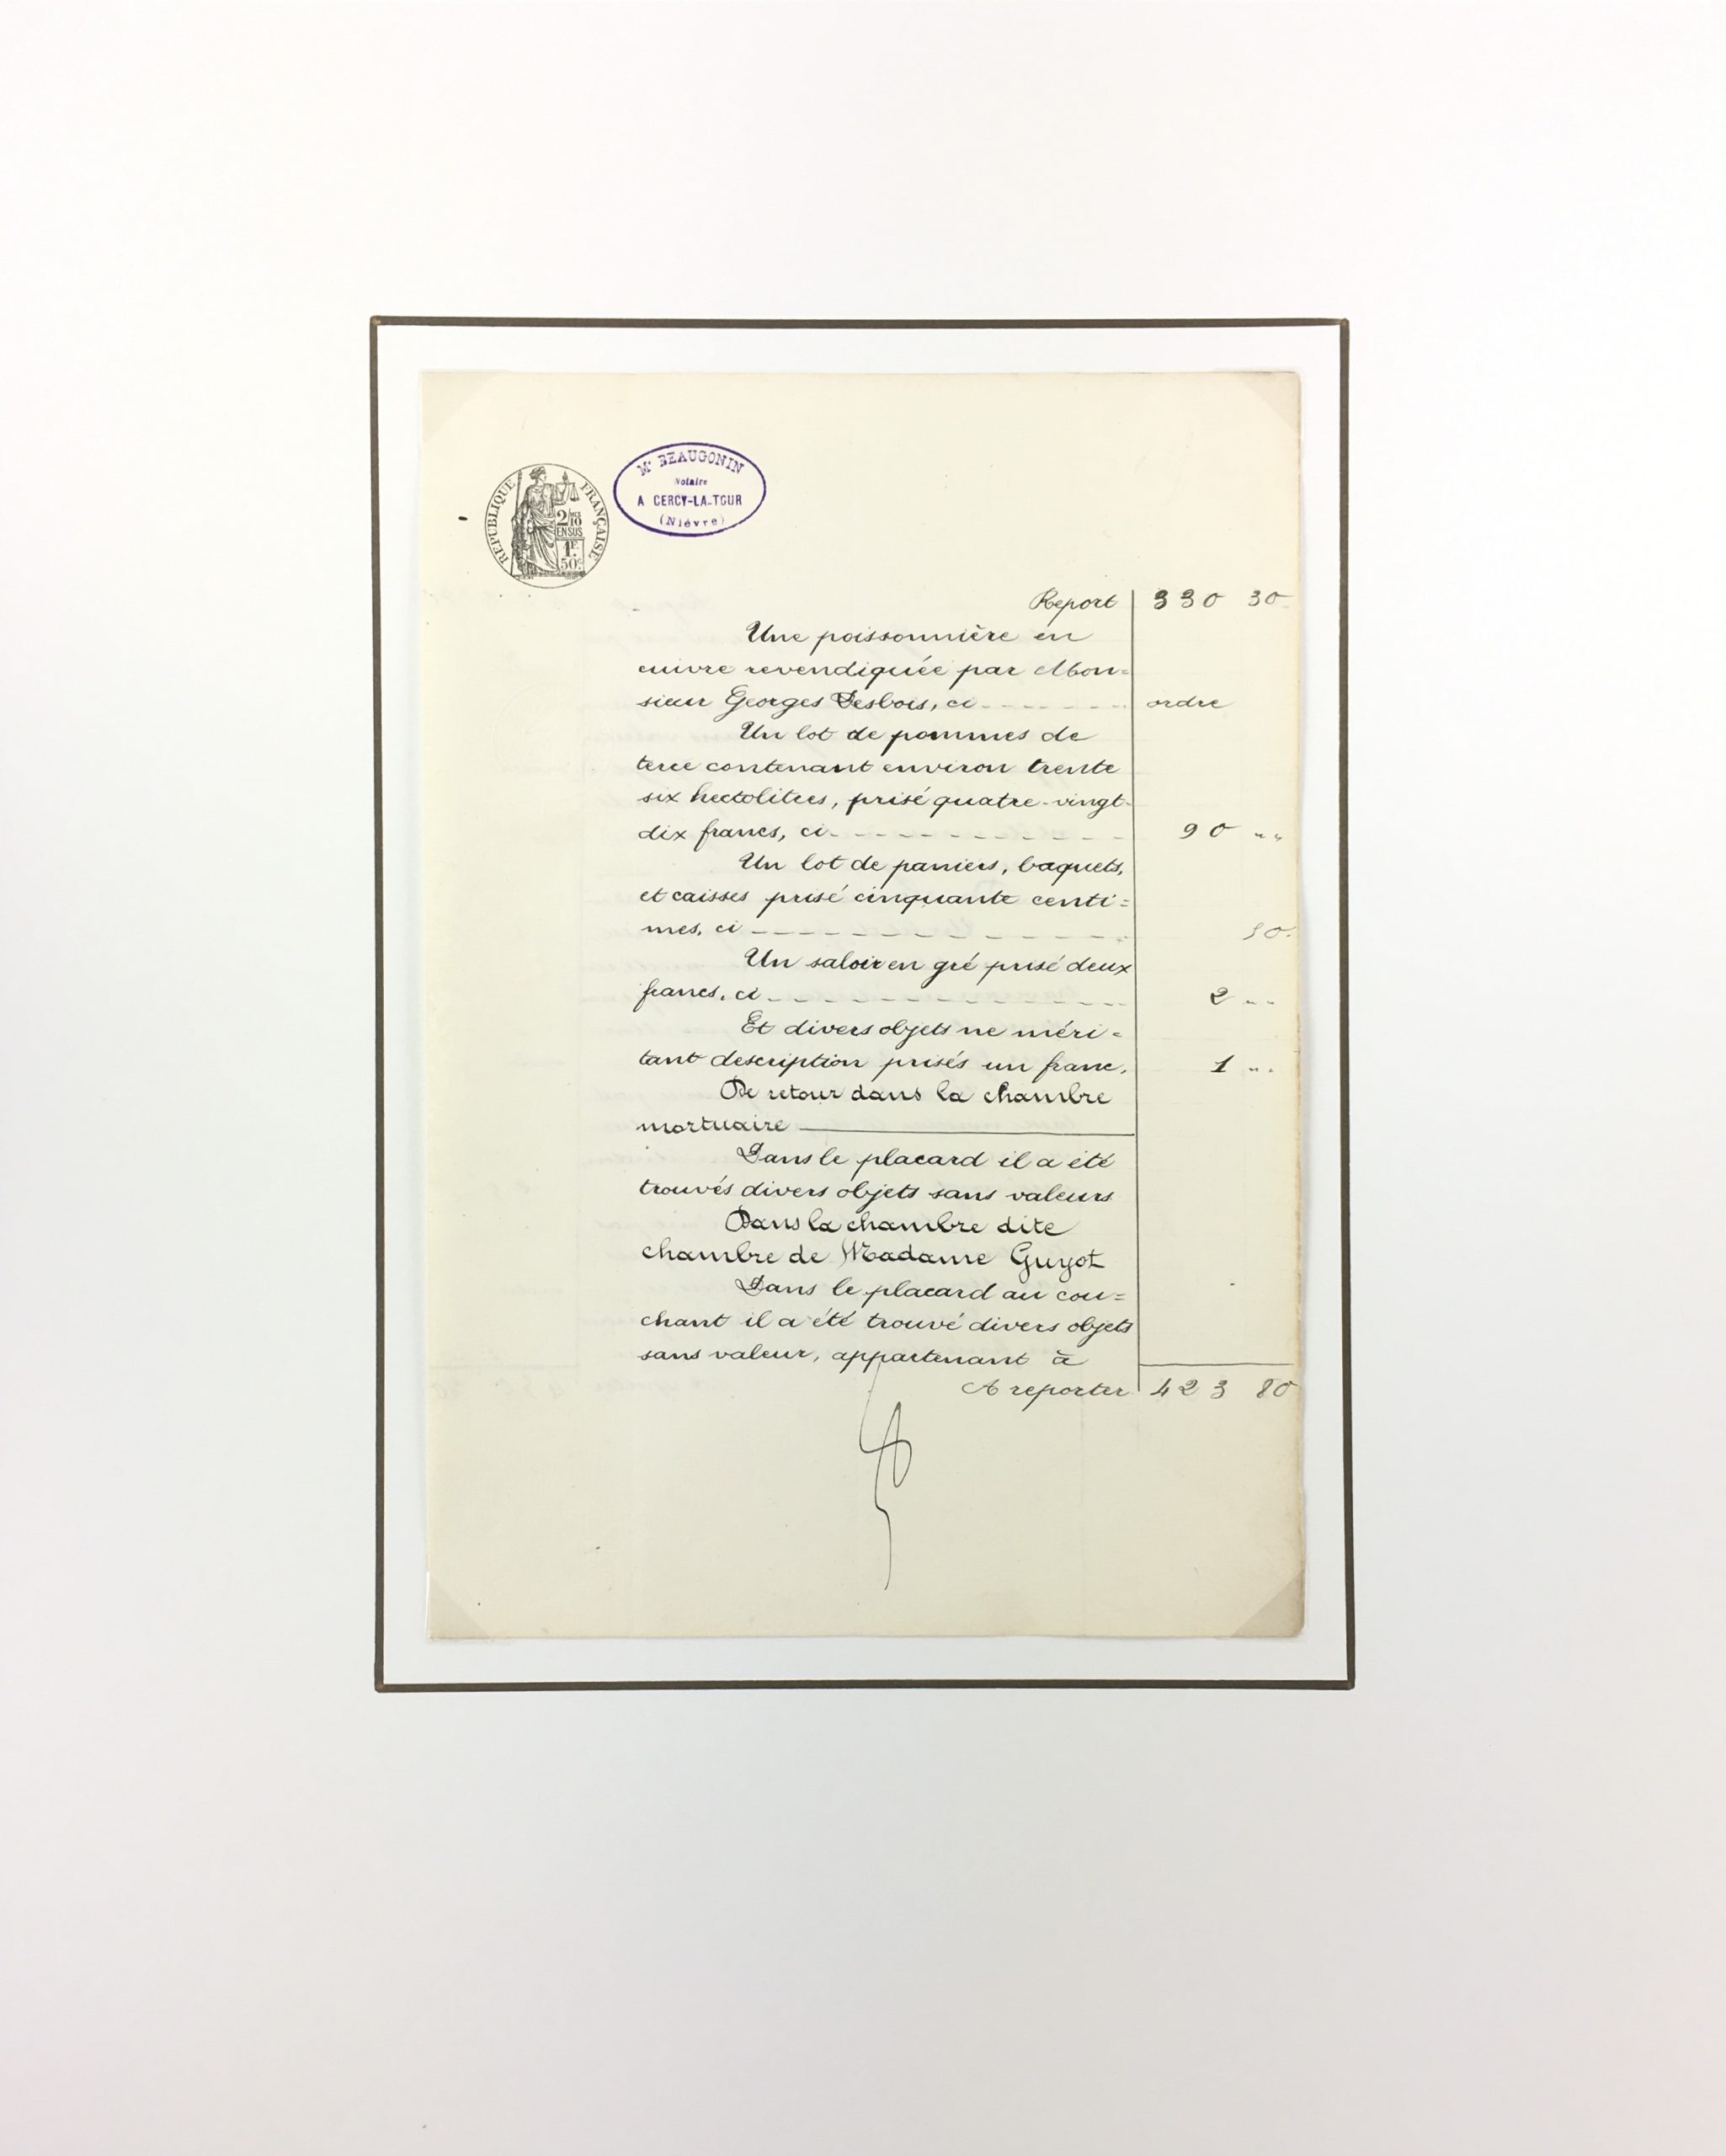 RÉPUBLIQUE FRANÇAISE
2/10
EN SUS
1F.
50c
Me BEAUGONIN
Notaire
A CERCY-LA-TOUR
(Nièvre)
Report 330 30
Une poissonnière en
cuivre revendiquée par Mon=
sieur Georges Desbois, ci ordre
Un lot de pommes de
terre contenant environ trente
six hectolitres, prisé quatre-vingt-
dix francs, ci 90 " "
Un lot de paniers, baquets,
et caisses prisé cinquante centi=
mes, ci 50
Un saloir en gré prisé deux
francs, ci 2 " "
Et divers objets ne méri=
tant description prisés un franc. 1 " "
De retour dans la chambre
mortuaire
Dans le placard il a été
trouvés divers objets sans valeurs
Dans la chambre dite
chambre de Madame Guyot
Dans le placard au cou=
chant il a été trouvé divers objets
sans valeur, appartenant à
A reporter 423 80